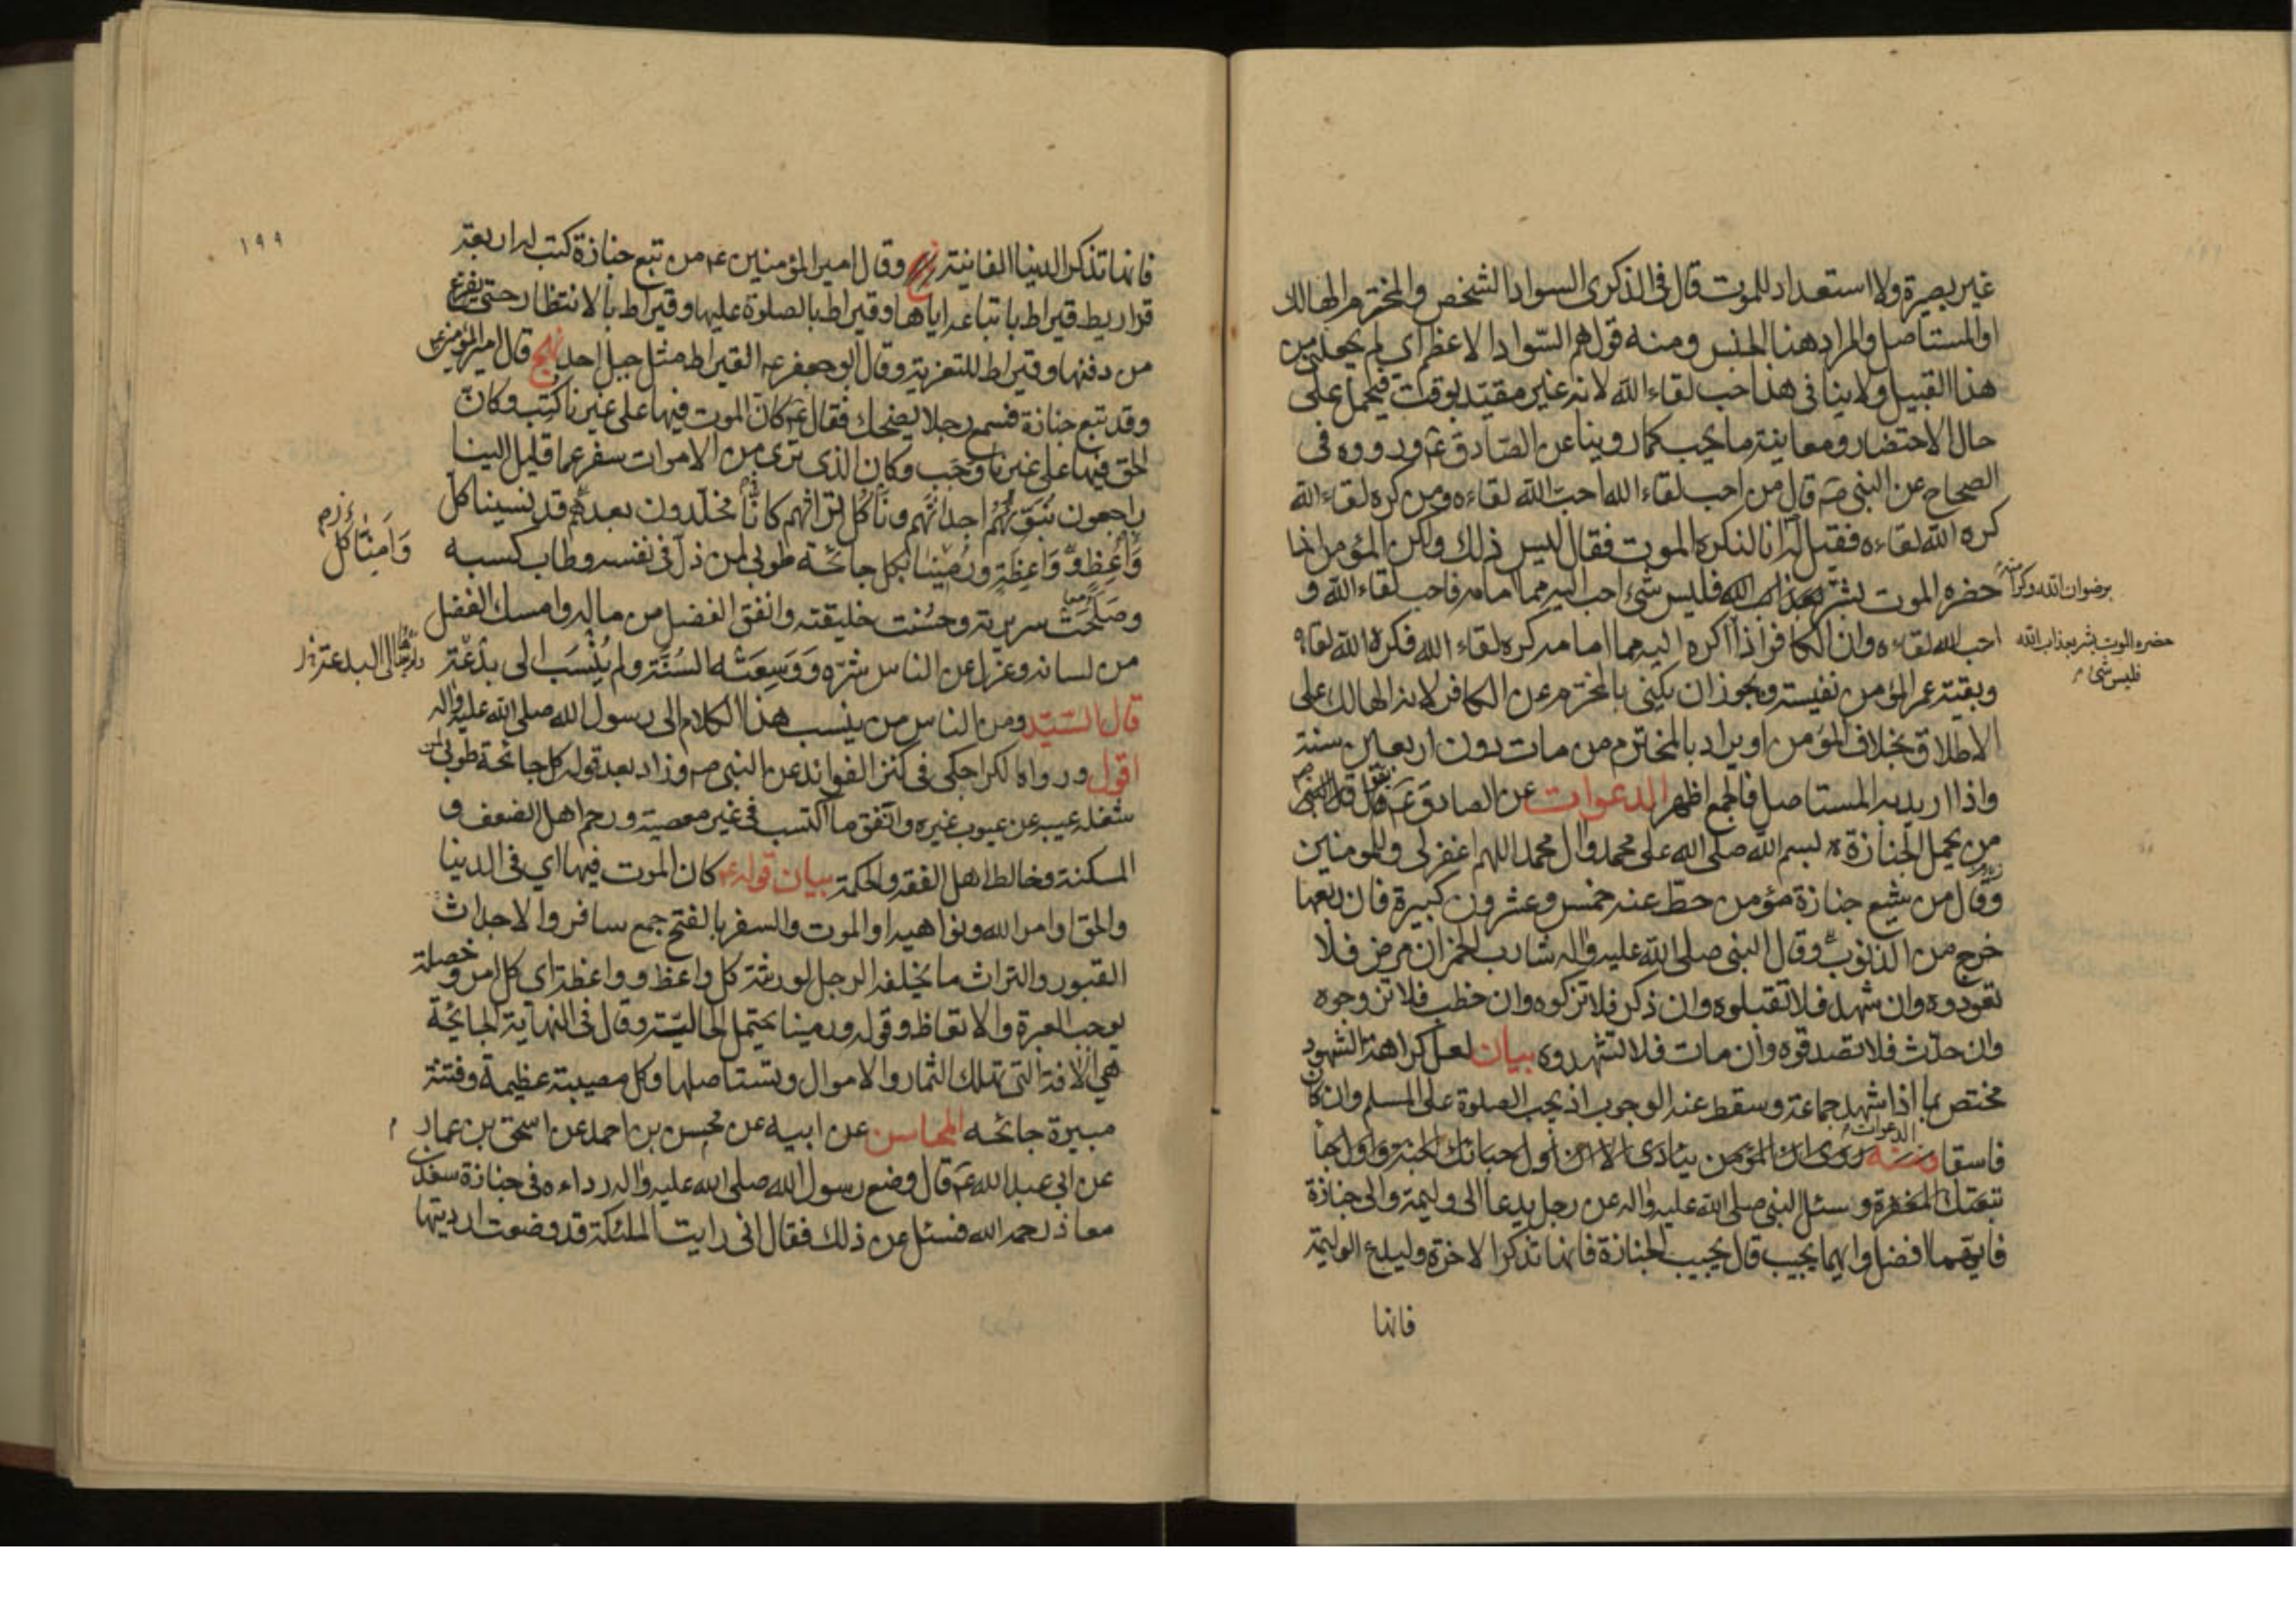 غير بصيرة ولا استعداد للموت قال فى الذكرى السواد الشخص والمخترم الهالك
او المستاصل والمراد هنا الجنس ومنه قولهم السّواد الاعظم اى لم يجعلنى من
هذا القبيل ولا ينافى هذا حب لقاء الله لانه غير مقيّد بوقت فيحمل على
حال الاحتضار ومعاينة ما يحب كما روينا عن الصّادق ع ورووه فى
الصحاح عن النبى ص قال من احب لقاء الله احبّ الله لقاءه ومن كره لقاء الله
كره الله لقاءه فقيل له انا لنكره الموت فقال ليس ذلك ولكن المؤمن اذا
حضره الموت بشر بعذاب الله فليس شىء احب اليه مما امامه فاحب لقاء الله و
برضوان الله وكرامته
احب الله لقاءه وان الكافر اذا اكره اليه مما امامه كره لقاء الله فكره الله لقاه
حضره الموت بشر بعذاب الله
فليس شىء
وبقية عمر المؤمن نفيسة ويجوز ان يكنى بالمخترم عن الكافر لانه الهالك على
الاطلاق بخلاف المؤمن او يراد بالمخترم من مات دون اربعين سنة
واذا اريد به المستاصل فالجمع اظهر الدعوات عن الصادق ع قال قال النبى ص
من يحمل الجنازة بسم الله صلى الله على محمد وال محمد اللهم اغفر لى وللمومنين
وقال من شيع جنازة مؤمن حطّ عنه خمس وعشرون كبيرة فان ربعها
خرج من الذنوب وقال النبى صلى الله عليه واله شارب الخمر ان مرض فلا
تعودوه وان شهد فلا تقبلوه وان ذكر فلا تزكوه وان خطب فلا تزوجوه
وان حدّث فلا تصدقوه وان مات فلا تشهدوه بيان لعل كراهة الشهود
مختص بما اذا شهد جماعة وسقط عنه الوجوب اذ يجب الصلوة على المسلم وان كان
الدعوات
فاسقا ومنه روى ان المؤمن ينادى الا ان اول حبائك الجنة واول حبا
تبعتك المغفرة وسئل النبى صلى الله عليه واله عن رجل يدعا الى وليمة والى جنازة
فايهما افضل وايهما يجيب قال يجيب الجنازة فانها تذكر الاخرة وليدع الوليمة
فانها
١٩٩
فانها تذكر الدنيا الفانية نهج وقال امير المؤمنين ع من تبع جنازة كتب له اربعة
قراريط قيراط باتباعه اياها وقيراط بالصلوة عليها وقيراط بالانتظار حتى يفرغ
من دفنها وقيراط للتعزية وقال ابو جعفر ع القيراط مثل جبل احد نهج قال امير المؤمنين ع
وقد تبع جنازة فسمع رجلا يضحك فقال ع كانّ الموت فيها على غيرنا كُتب وكانّ
الحق فيها على غيرنا وجَب وكان الذى نرى من الاموات سفر عما قليل الينا
راجعون نُبَوّئهُم اجداثَهُم ونأكُل تراثهم كانّا مخلّدون بعدهم قد نسينا كل
وَاعِظٍ وَوَاعِظَةٍ ورُمينا بكل جائحة طوبى لمن ذلّ فى نفسه وطاب كسبه
وَأمِنّا كل
وصلحت سريرته وحسُنت خليقته وانفق الفضل من ماله وامسك الفضل
من لسانه وعزل عن الناس شرّه وَوَسِعَتْه السُنَّة ولم يُنْسَب الى بِدْعَة
الى البدعة
قال السيّد ومن الناس من ينسب هذا الكلام الى رسول الله صلى الله عليه واله
اقول ورواه الكراجكى فى كنز الفوائد عن النبى ص وزاد بعد قوله كل جائحة طوبى لمن
شغله عيبه عن عيوب غيره وانفق ما اكتسب فى غير معصية ورحم اهل الضعف و
المسكنة وخالط اهل الفقه والحكمة بيان قوله ع كان الموت فيها اى فى الدنيا
والحق اوامر الله ونواهيه او الموت والسفر بالفتح جمع سافر والاجداث
القبور والتراث ما يخلفه الرجل لورثته كل واعظ وواعظة اى كل امر وخصلة
يوجب العبرة والاتعاظ وقوله ورمينا يحتمل الحاليّة وقال فى النهاية الجائحة
هى الافة التى تهلك الثمار والاموال وتستاصلها وكل مصيبة عظيمة وفتنة
مبيرة جائحه المحاسن عن ابيه عن محسن بن احمد عن اسحق بن عمار
عن ابى عبد الله ع قال وضع رسول الله صلى الله عليه واله رداءه فى جنازة سعد بن
معاذ رحمه الله فسئل عن ذلك فقال انى رايت الملئكة قد وضعت ارديتها